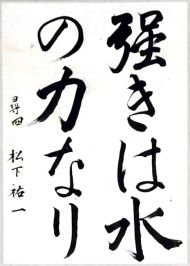 強きは水
の力なり
尋四 松下祐一